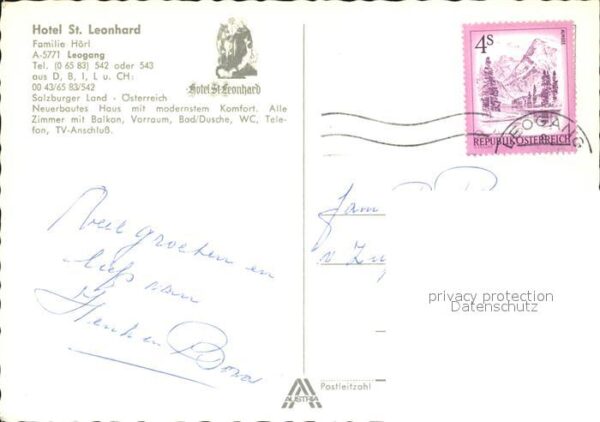 Hotel St. Leonhard
Familie Hörl
A-5771 Leogang
Tel. (0 65 83) 542 oder 543
aus D, B, I, L u. CH:
00 43/65 83/542
Salzburger Land - Österreich
Neuerbautes Haus mit modernstem Komfort. Alle
Zimmer mit Balkon, Vorraum, Bad/Dusche, WC, Tele-
fon, TV-Anschluß.
Hotel St. Leonhard
4S
ALMSEE
REPUBLIK ÖSTERREICH
LEOGANG
Veel groeten en
liefs van
Henk en
Fam
privacy protection
Datenschutz
AUSTRIA
Postleitzahl